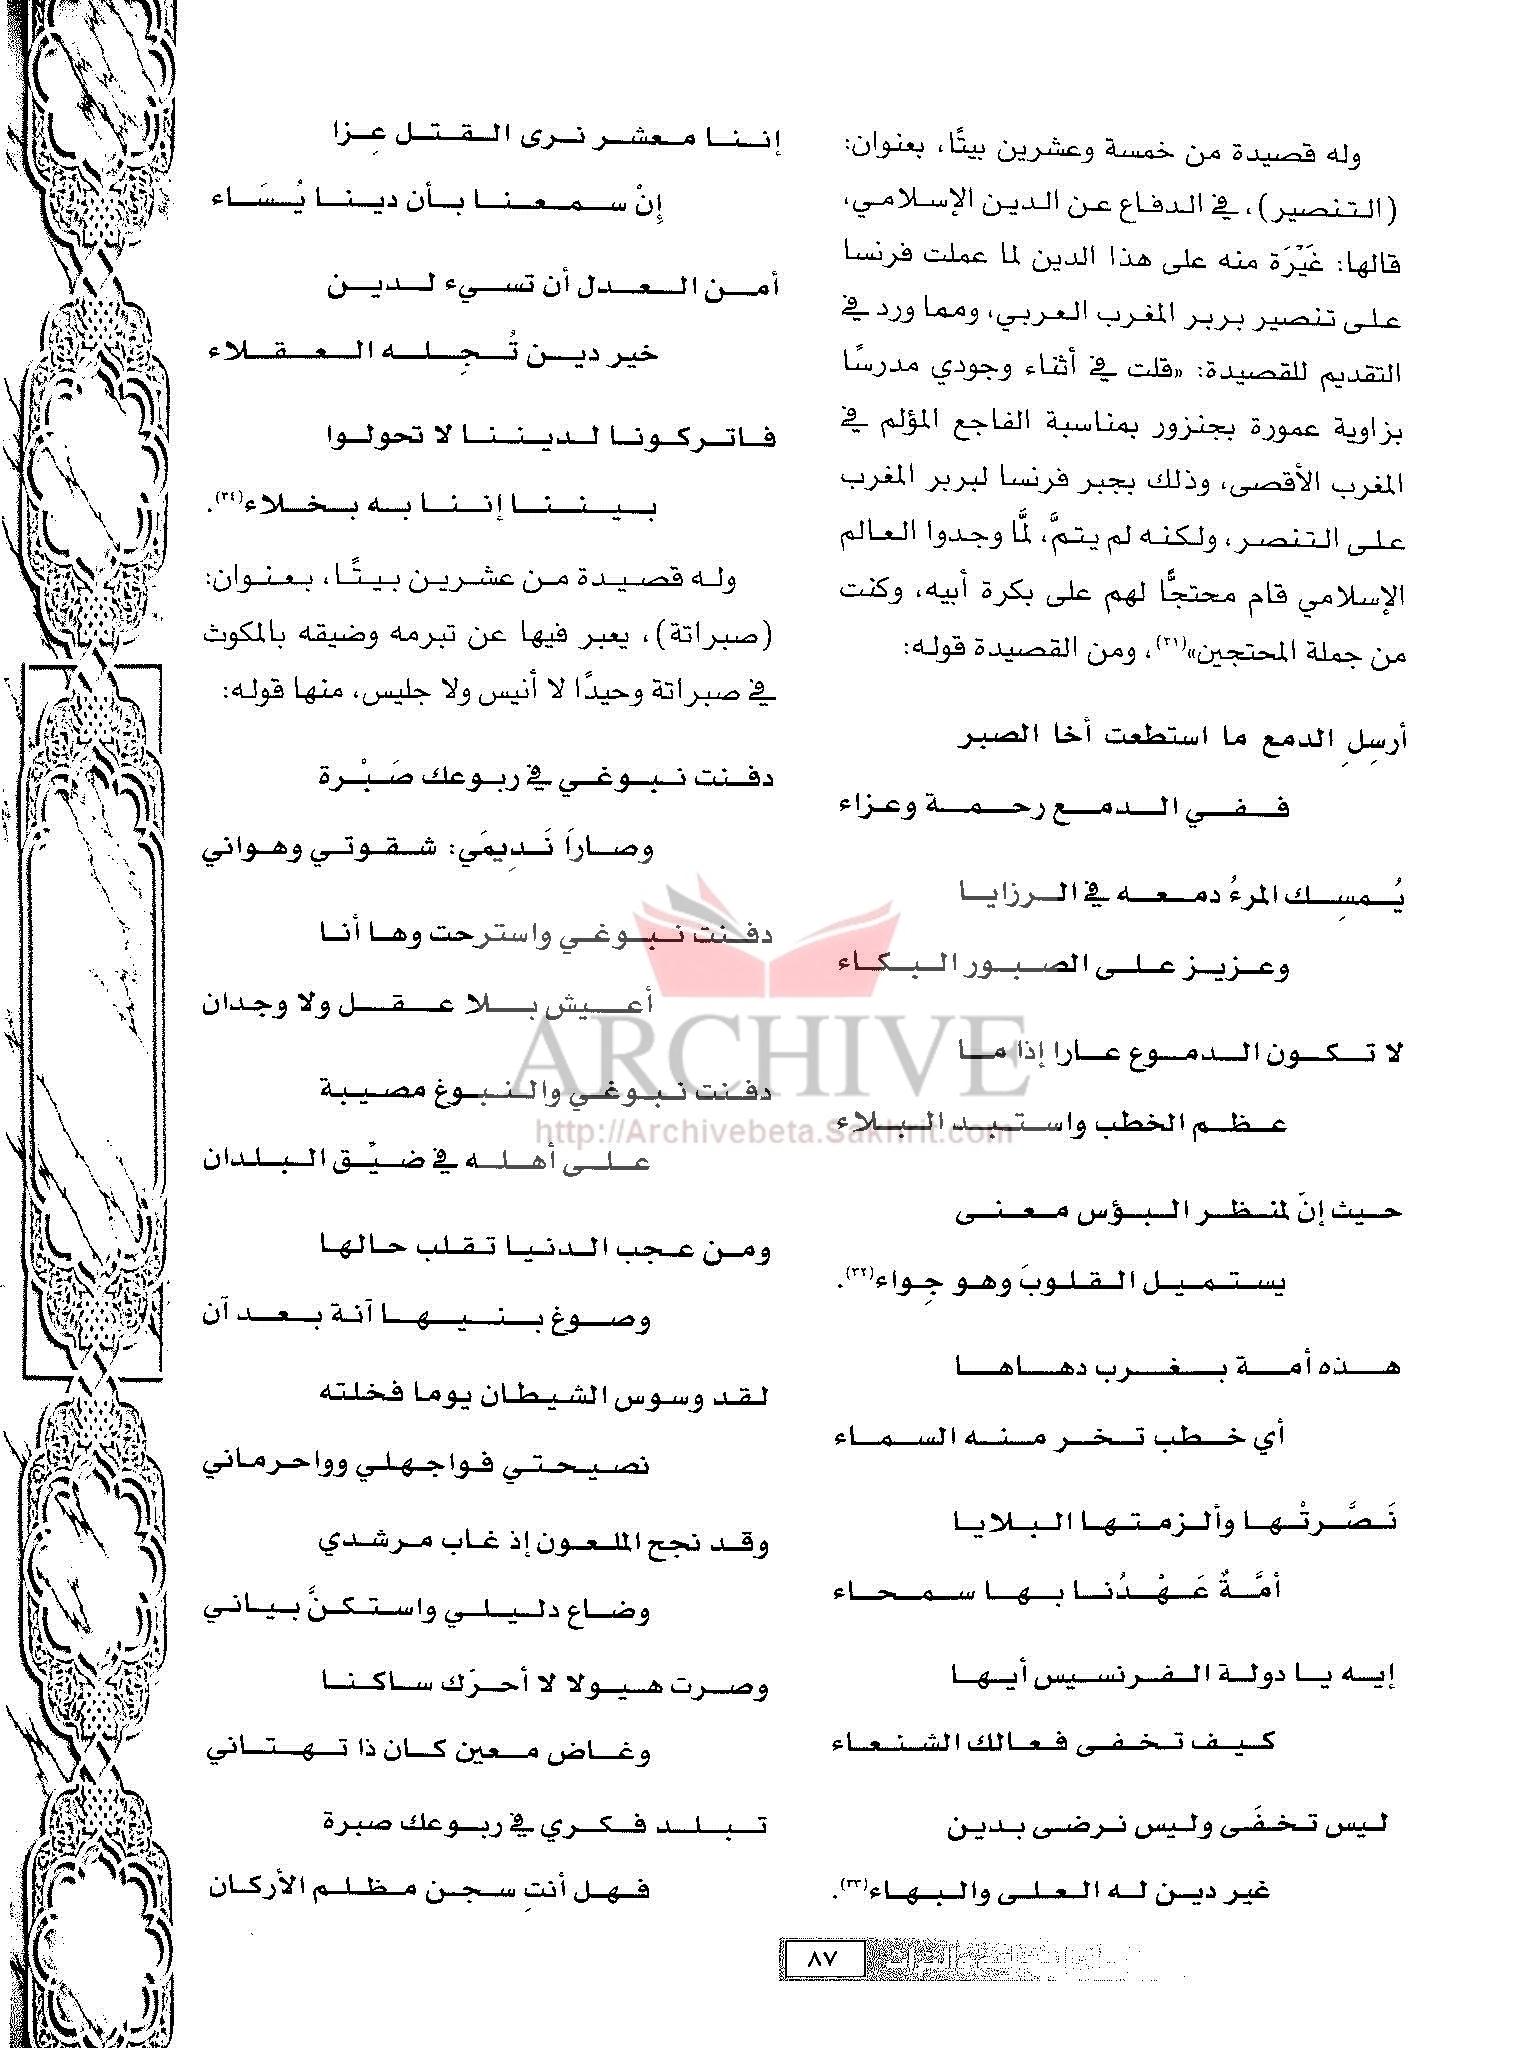 وله قصيدة من خمسة وعشرين بيتًا، بعنوان:
(التنصير)، في الدفاع عن الدين الإسلامي،
قالها: غَيْرَة منه على هذا الدين لما عملت فرنسا
على تنصير بربر المغرب العربي، ومما ورد في
التقديم للقصيدة: «قلت في أثناء وجودي مدرسًا
بزاوية عمورة بجنزور بمناسبة الفاجع المؤلم في
المغرب الأقصى، وذلك بجبر فرنسا لبربر المغرب
على التنصر، ولكنه لم يتمَّ، لمَّا وجدوا العالم
الإسلامي قام محتجًّا لهم على بكرة أبيه، وكنت
من جملة المحتجين»(٣١)، ومن القصيدة قوله:
أرسِلِ الدمع ما استطعت أخا الصبر
ففي الدمع رحمة وعزاء
يُمسِك المرءُ دمعه في الرزايا
وعزيز على الصبور البكاء
لا تكون الدموع عارا إذا ما
عظم الخطب واستبد البلاء
حيث إنّ لمنظر البؤس معنى
يستميل القلوبَ وهو جِواء(٣٢).
هذه أمة بغرب دهاها
أي خطب تخر منه السماء
نَصَّرتْها وألزمتها البلايا
أمَّةٌ عَهْدُنا بها سمحاء
إيه يا دولة الفرنسيس أيها
كيف تخفى فعالك الشنعاء
ليس تخفَى وليس نرضى بدين
غير دين له العلى والبهاء(٣٣).
إننا معشر نرى القتل عِزا
إنْ سمعنا بأن دينا يُسَاء
أمن العدل أن تسيء لدين
خير دين تُجِله العقلاء
فاتركونا لديننا لا تحولوا
بيننا إننا به بخلاء(٣٤).
وله قصيدة من عشرين بيتًا، بعنوان:
(صبراتة)، يعبر فيها عن تبرمه وضيقه بالمكوث
في صبراتة وحيدًا لا أنيس ولا جليس، منها قوله:
دفنت نبوغي في ربوعك صَبْرة
وصاراَ نَدِيمَي: شقوتي وهواني
دفنت نبوغي واسترحت وها أنا
أعيش بلا عقل ولا وجدان
دفنت نبوغي والنبوغ مصيبة
على أهله في ضيِّق البلدان
ومن عجب الدنيا تقلب حالها
وصوغ بنيها آنة بعد آن
لقد وسوس الشيطان يوما فخلته
نصيحتي فواجهلي وواحرماني
وقد نجح الملعون إذ غاب مرشدي
وضاع دليلي واستكنَّ بياني
وصرت هيولا لا أحرّك ساكنا
وغاض معين كان ذا تهتاني
تبلد فكري في ربوعك صبرة
فهل أنتِ سجن مظلم الأركان
ARCHIVE
http://Archivebeta.Sakhrit.com
٨٧